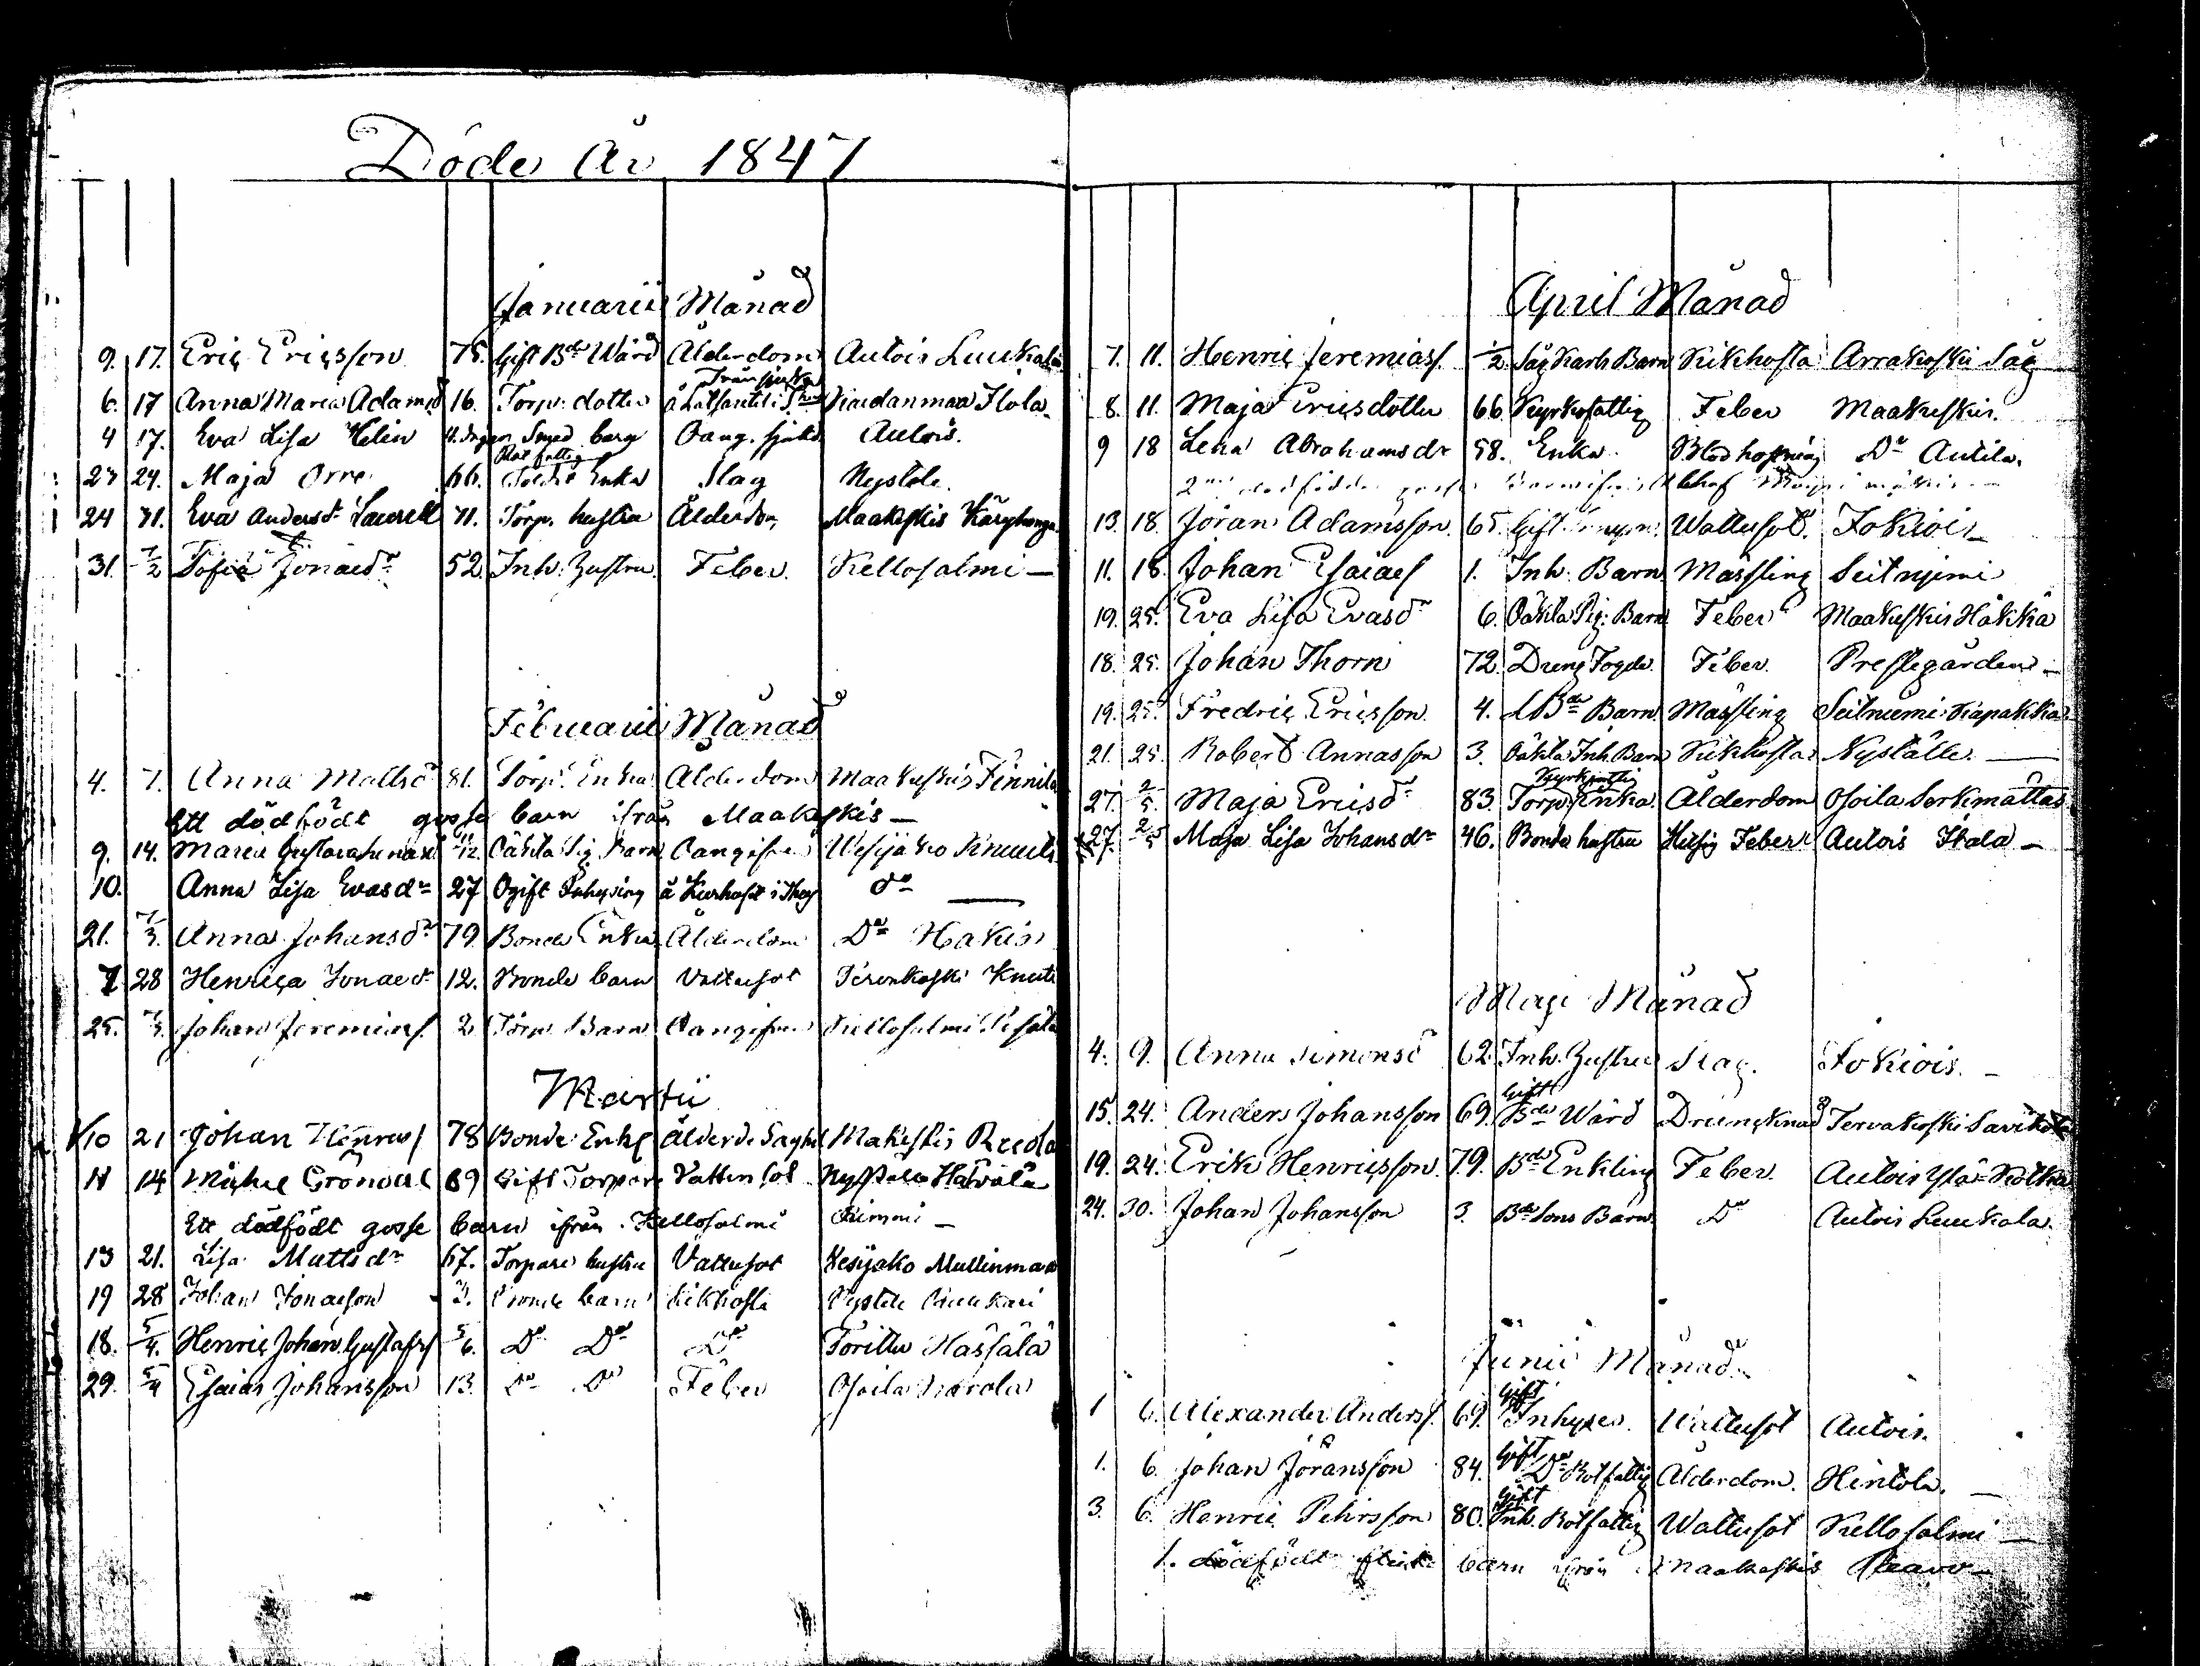 Döde År 1847
Januarii Månad
9. 17. Eric Ericsson 75. Gift Bde Wärd Ålderdom Autois Luukala
6. 17 Anna Maria Adamsd 16. Torp. dotter Kaidanmaa Flola
4 17. Eva Lisa Helin barn Oang. sjukd Autois.
Rotfattig
23 24. Maja Orre 66. Soldt Enka Slag Nystele
24 31. Eva Andersdr Laurell 71. Torp. hustru Ålderdom Maakeskis
31. 7/2 Sofia Jonaedr 52 Inh. Hustru Feber. Kellosalmi —
Februarii Månad
4. 7. Anna Mattsd 81. Torp. Enka Ålderdom Maakeskis Finnila
Ett dödfödt gosse barn ifrån Maakeskis —
9. 14. Maria Oäkta Pig. Barn Oangifven Wesijako
10. Anna Lisa Evasdr 27 Ogift Inhysing å Kurhuset do —
21. 7/3. Anna Johansdr 79. Bonde Enka Ålderdom Do Hakis
7 28 Henrica Jonaedr 12. Bonde barn Vattusot Knuti
25. 7/3. Johan Jeremiass. 2 Torp. Barn Oangifven Kellosalmi
Martii
10 21 Johan Henricss 78 Bonde Enkl Ålderd Maakeskis
11 14 Michel Grönval 69 Gift Torpare Vattusot
Ett dödfödt gosse barn ifrån Kellosalmi —
13 21. Lisa Mattsdr 67. Torpare hustru Vattusot Vesijako Mullinmaa
19 28 Johan Jonaeson 3. Bonde barn Kikhosta
18. 5/4. Henric Johan Gustafss 5/6. Do Do Do Torittu Hassala
29. 5/4 Esaias Johansson 13. Do Do Feber Osoila
April Månad
7. 11. Henric Jeremiass. 1/2 Såg Karls Barn Kikhosta Arrakoski Såg
8. 11. Maja Ericsdotter 66 Kyrkofattig Feber Maakeskis.
9 18 Lena Abrahamsdr 58. Enka Blodhostning Do Autila.
13. 18. Jöran Adamsson. 65. Gift Wattusot. Jokiois
11. 18. Johan Esaiaes 1. Inh. Barn Mässling Seitniemi
19. 25. Eva Lisa Evasdr 6. Oäkta Pig. Barn Feber Maakeskis Håkkä
18. 25. Johan Thorn 72. Dreng Fogde Feber. Prestegården —
19. 25. Fredric Ericsson 4. Bde Barn Mässling Seitniemi Kapakka
21. 25. Robert Annasson 3. Oäkta Inh. Barn Kikhosta Nyställe —
Kyrkfattig
27. 2/5. Maja Ericsdr 83. Torp. Enka Ålderdom Osoila Serkmattas
27. 2/5 Maja Lisa Johansdr 46. Bonde hustru Hitsig Feber Autois Skala —
Maji Månad
4. 9. Anna Simonsd 62. Inh. Hustru Slag. Jokiois. —
15. 24. Anders Johansson 69. Gift Bde Wärd Drunknad Tervakoski
19. 24. Erik Henricsson. 79. Bde Enkling Feber. Autois
24. 30. Johan Johansson 3. Bde Sons Barn. Do Autois Luukala.
Junii Månad
1 6. Alexander Anderss. 69. Gift Inhyses. Wattusot Autois.
1. 6. Johan Jöransson 84. Gift Do Rotfattig Ålderdom. Hintola. —
3. 6. Henric Pehrsson 80. Gift Inh. Rotfattig Wattusot Kellosalmi —
1. dödfödt flicke barn ifrån Maakeskis